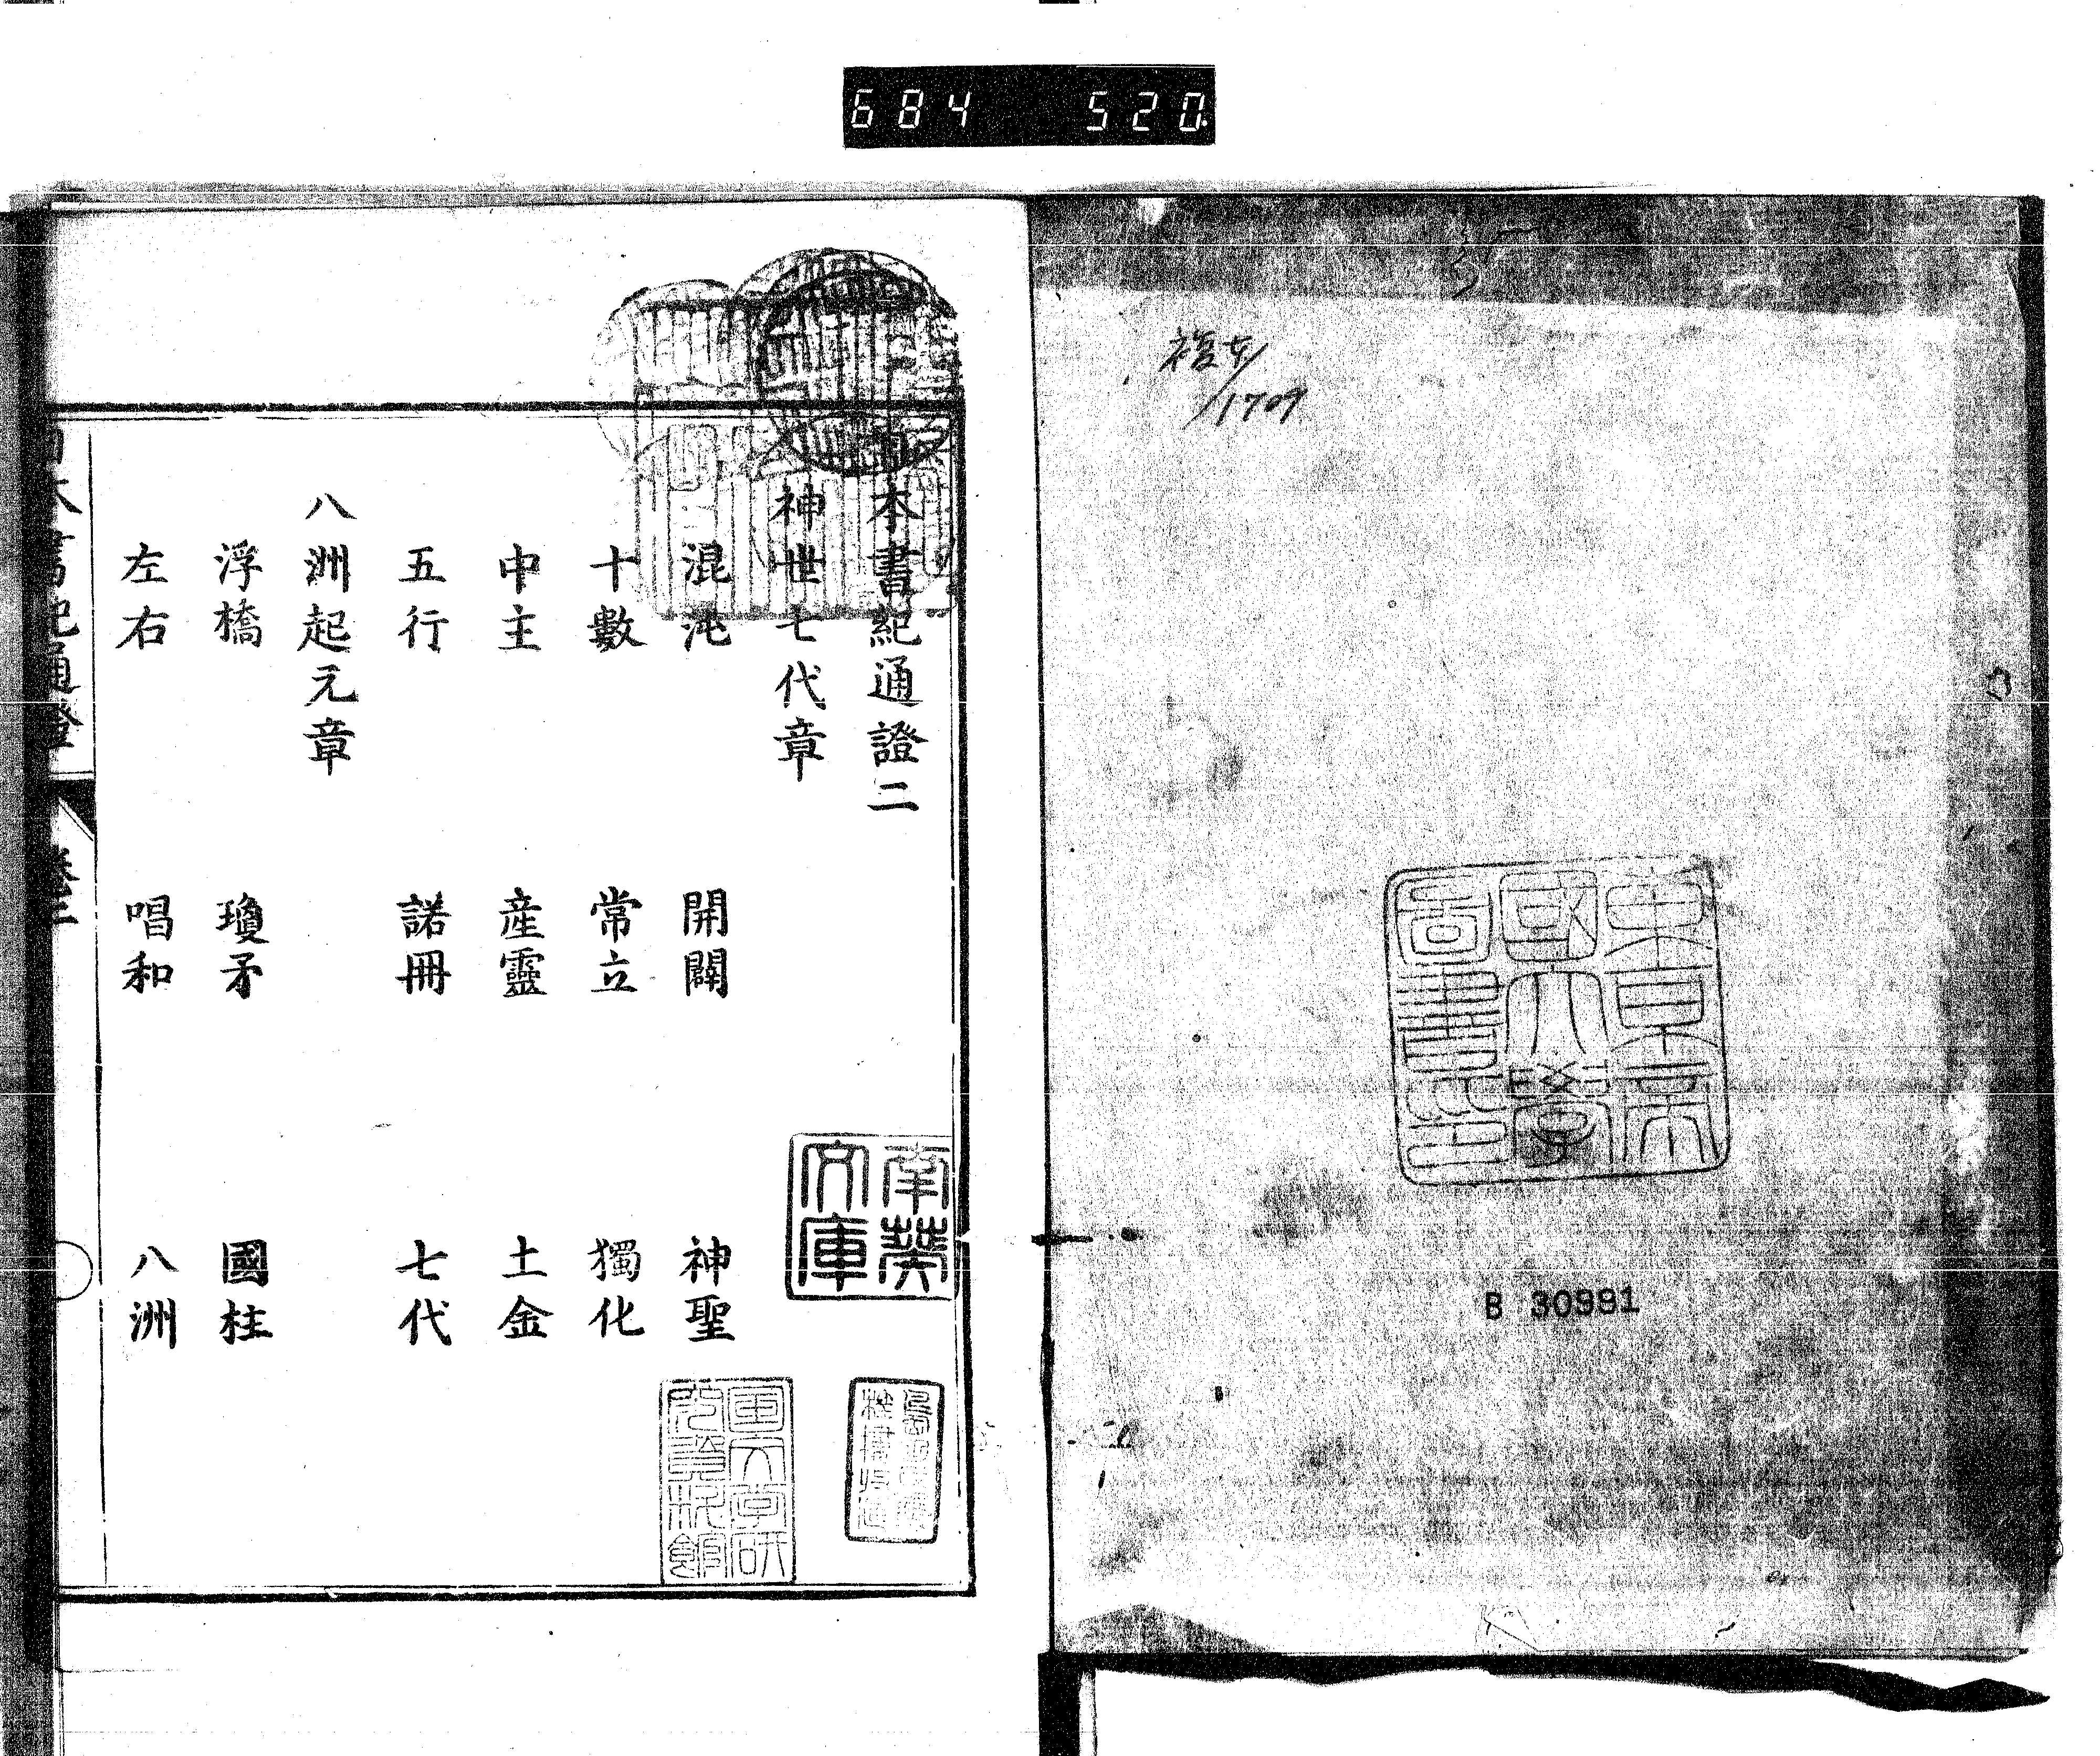 684 520
複左
1709
東京帝
國大學
圖書印
B 30991
日本書紀通證二
神世七代章
混沌 開闢 神聖
十數 常立 獨化
中主 産靈 土金
五行 諾冊 七代
八洲起元章
浮橋 瓊矛 國柱
左右 唱和 八洲
南葵
文庫
日本書紀通證 卷二